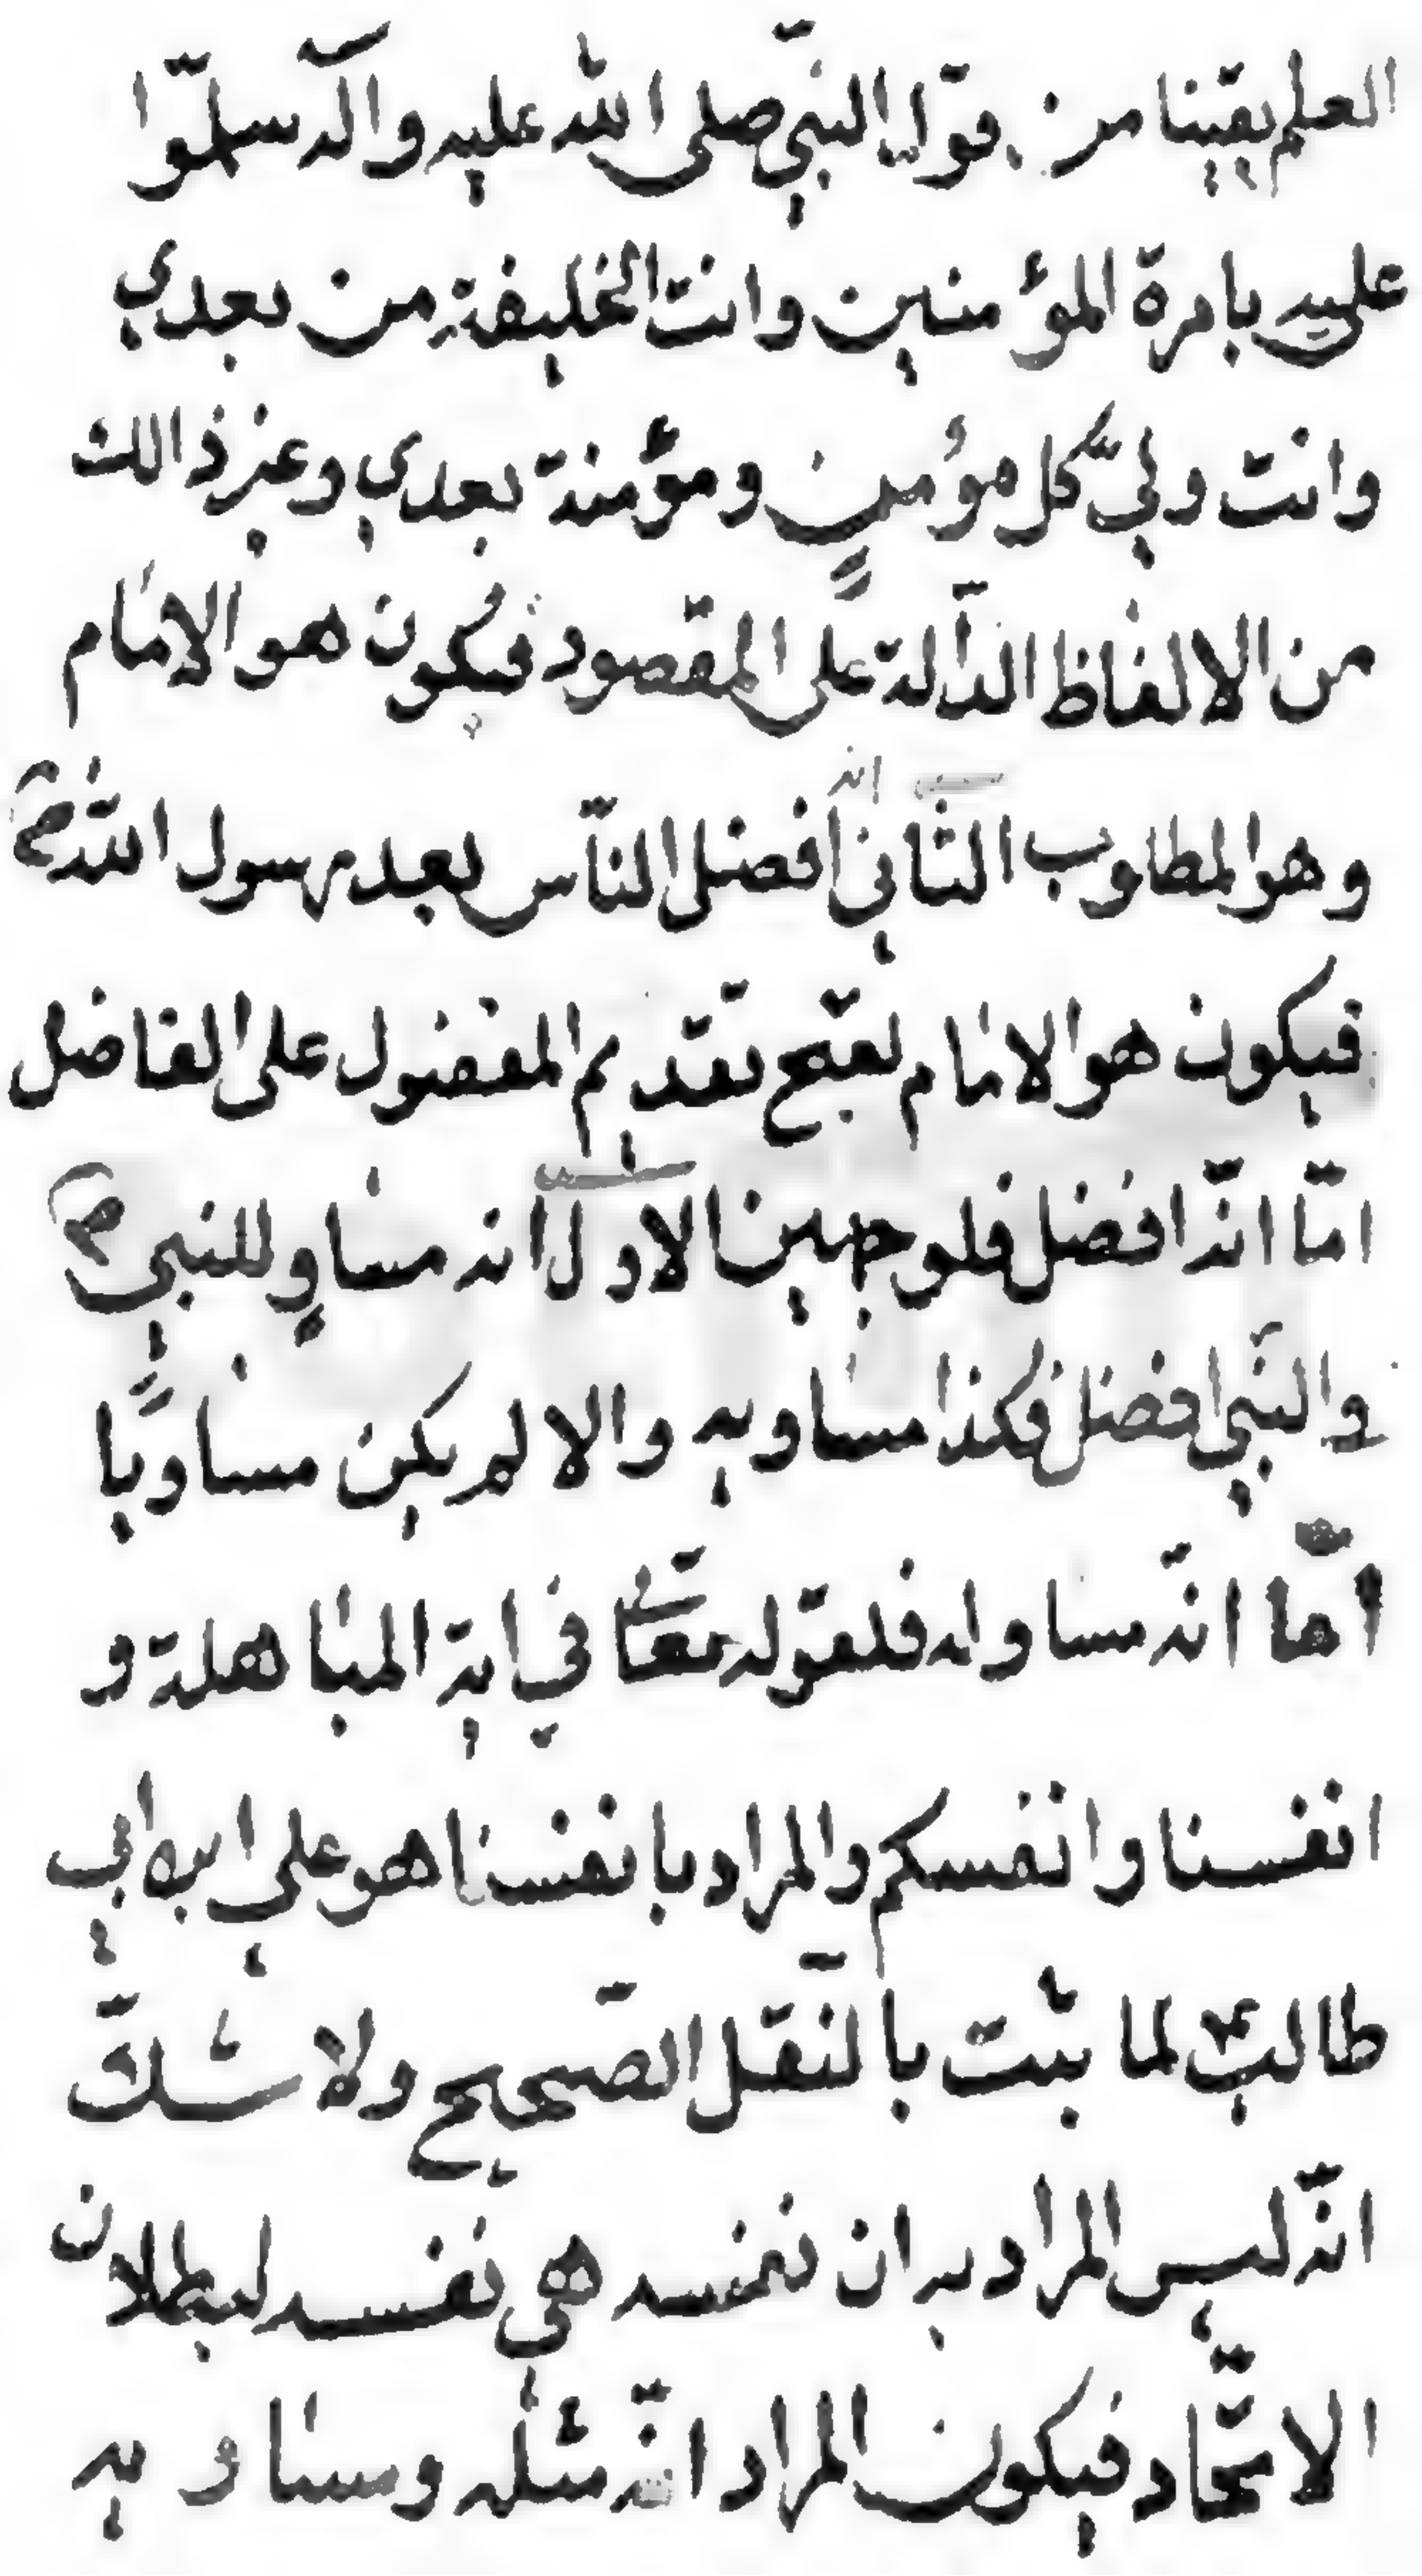 العلم يقينا من قول النبيّ صلى الله عليه وآله سلّموا
عليه بامرة المؤمنين وانت الخليفة من بعدي
وانت وليّ كل مؤمنٍ ومؤمنة بعدي وغير ذالك
من الالفاظ الدآلة على المقصود فيكون هو الامام
وهو المطلوب الثاني انه افضل الناس بعد رسول الله ص
فيكون هو الامام لقبح تقديم المفضول على الفاضل
امّا انّه افضل فلوجهين الاول انه مساوٍ للنبي ص
والنبي افضل فكذا مساويه والا لم يكن مساويًا
امّا انّه مساو له فلقوله تعالى في اية المباهلة و
انفسنا وانفسكم والمراد بانفسنا هو علي ابن ابي
طالب ع لما ثبت بالنقل الصّحيح ولا شكّ
انّه ليس المراد به ان نفسه هي نفسه لبطلان
الاتّحاد فيكون المراد انّه مثله ومساويه